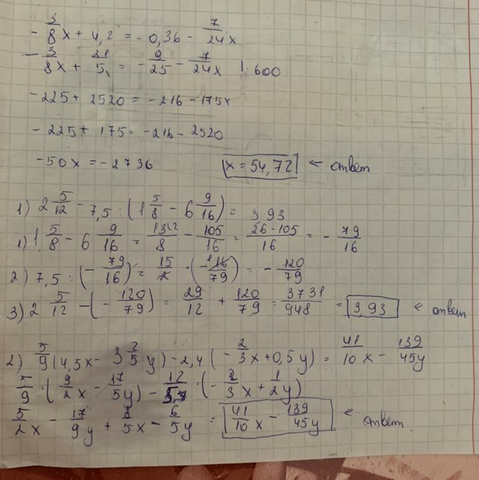 - 3/8x + 4,2 = - 0,36 - 7/24x
- 3/8x + 21/5 = - 9/25 - 7/24x | · 600
- 225 + 2520 = - 216 - 175x
- 225 + 175 = - 216 - 2520
- 50x = - 2736 x = 54,72 ← ответ
1) 2 5/12 - 7,5 : (1 5/8 - 6 9/16) = 3,93
1) 1 5/8 - 6 9/16 = 13\2/8 - 105/16 = 26-105/16 = - 79/16
2) 7,5 : (- 79/16) = 15/2 · (- 16/79) = - 120/79
3) 2 5/12 - (- 120/79) = 29/12 + 120/79 = 3731/948 = 3,93 ← ответ
2) 5/9 (4,5x - 3 2/5 y) - 2,4 (- 2/3x + 0,5y) = 41/10x - 139/45y
5/9 · (9/2x - 17/5y) - 12/5 · (- 2/3x + 1/2y)
5/2x - 17/9y + 8/5x - 6/5y = 41/10x - 139/45y ← ответ